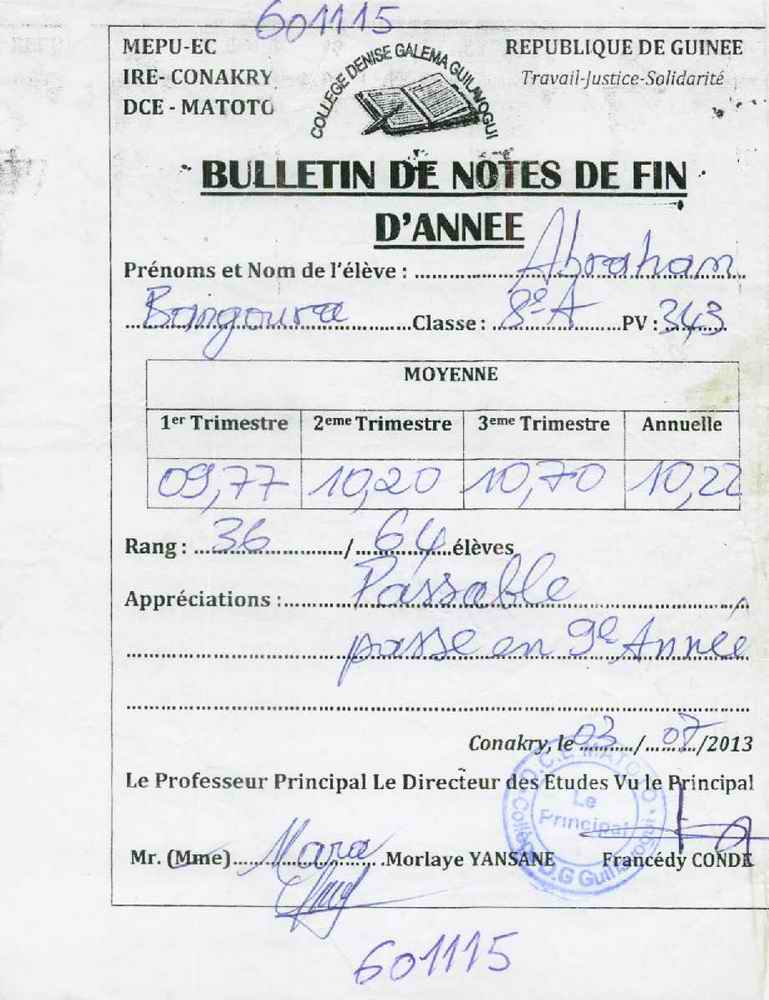 601115
MEPU-EC
REPUBLIQUE DE GUINEE
IRE- CONAKRY
Travail-Justice-Solidarité
DCE - MATOTO
COLLEGE DENISE GALEMA GUILAVOGUI
BULLETIN DE NOTES DE FIN
D'ANNEE
Prénoms et Nom de l'élève : Abraham
Bangoura Classe : 8e A PV : 343
MOYENNE
1er Trimestre 2eme Trimestre 3eme Trimestre Annuelle
09,77 10,20 10,70 10,22
Rang : 36 / 64 élèves
Appréciations : Passable
passe en 9e Année
Conakry, le 03 / 07 /2013
Le Professeur Principal Le Directeur des Etudes Vu le Principal
D.C.E MATOTO
Le
Principal
Collège D.G Guilavogui
Mr. (Mme) Mara Morlaye YANSANE Francédy CONDE
601115